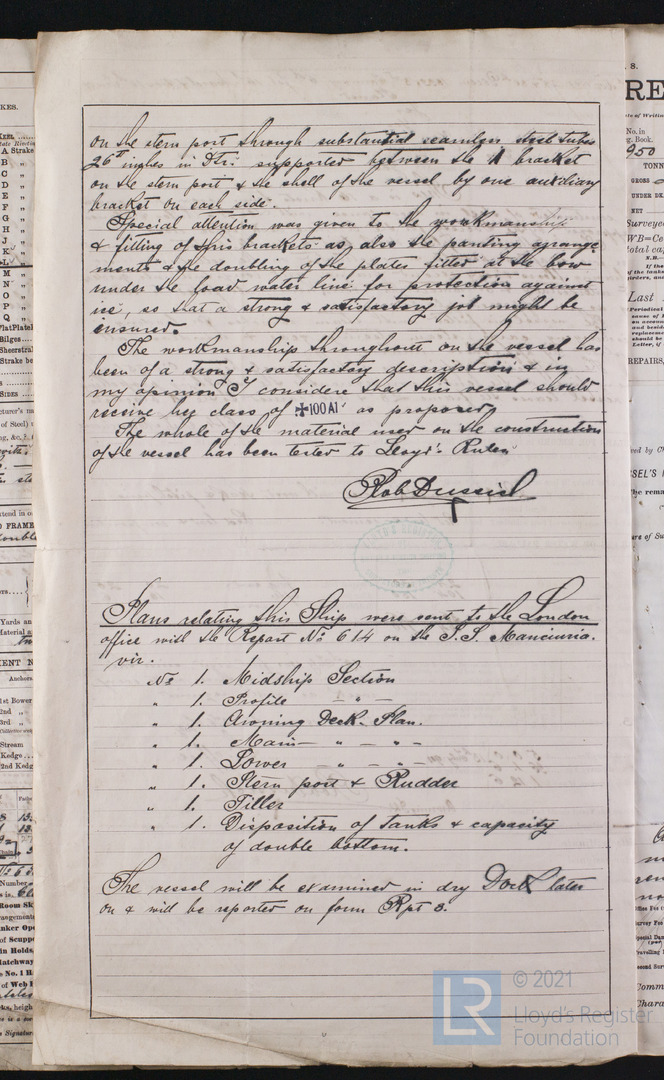 on the stern post through substantial seamless steel tubes
26" inches in Dtr: supported between the A bracket
on the stern post & the shell of the vessel by one auxiliary
bracket on each side.
Special attention was given to the workmanship
& fitting of this brackets as, also the panting arrange
ments & the doubling of the plates fitted at the bow
under the load water line for protection against
ice, so that a strong & satisfactory job might be
ensured.
The workmanship throughout on the vessel has
been of a strong & satisfactory description & in
my opinion I considere that this vessel should
receive her class of ✠100A1 as proposed
The whole of the material used on the construction
of the vessel has been tested to Lloyd's Rules
Plans relating this Ship were sent to the London
office with the Report No 614 on the S.S. Manciuria.
viz.
No 1. Midship Section
" 1. Profile - " -
" 1. Awning Deck - Plan.
" 1. Main - " - " -
" 1. Lower - " - " -
" 1. Stern post & Rudder
" 1. Tiller
" 1. Disposition of tanks & capacity
of double bottom.
The vessel will be examined in dry Dock later
on & will be reported on form Rpt 8.
LR
© 2021
Lloyd's Register
Foundation